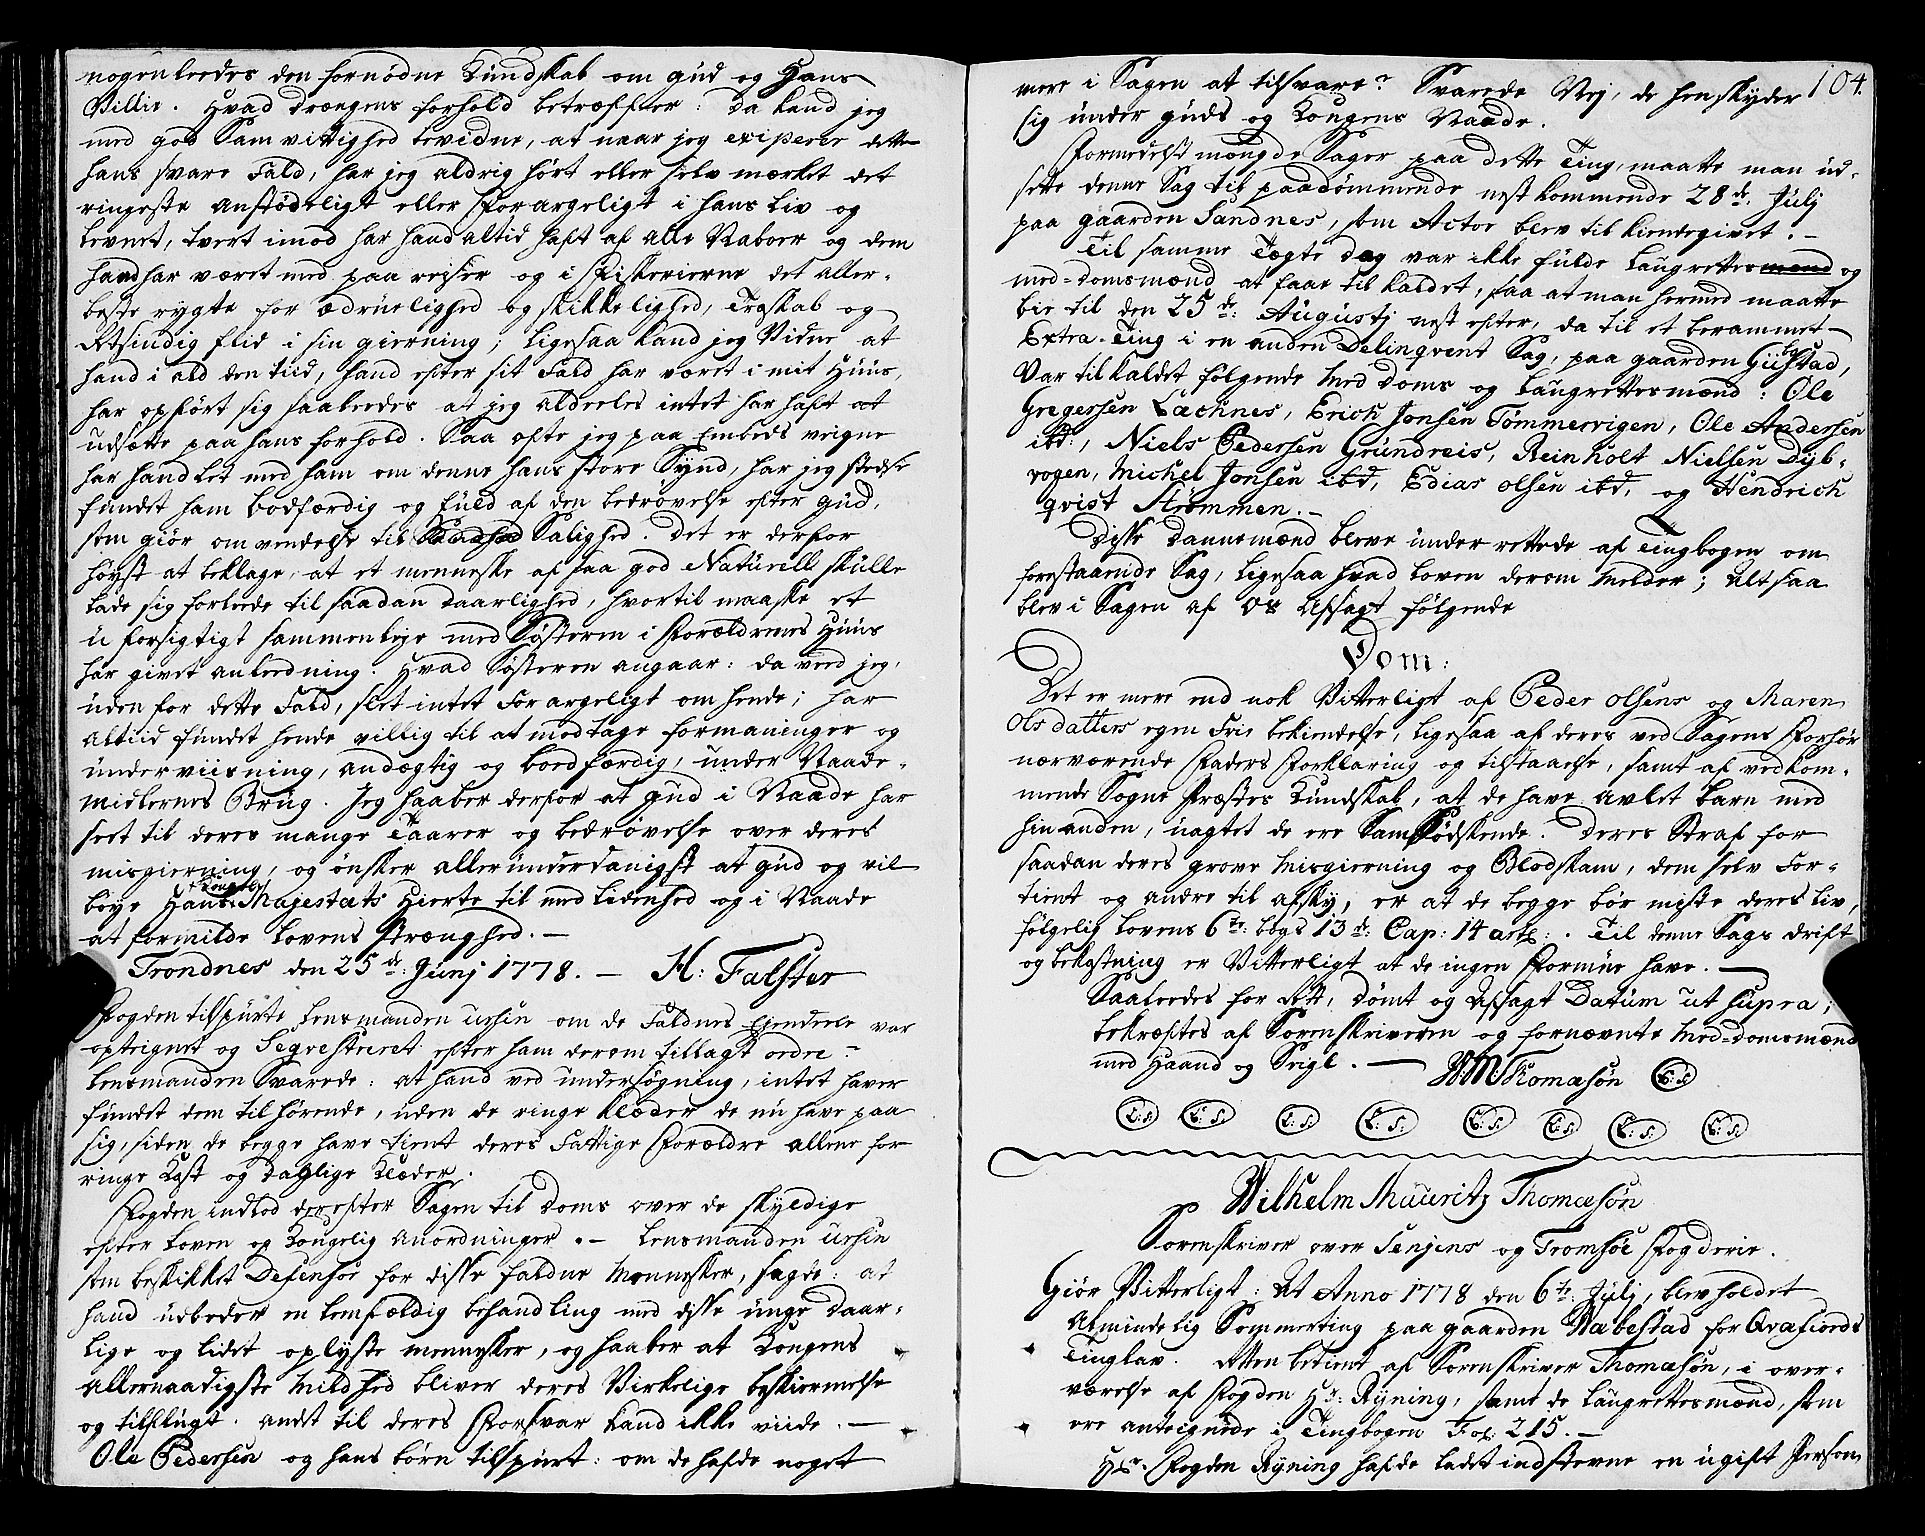 nogenleedes den fornødne Kundskab om gud og Hans
Villie. Hvad Drængens forhold betræffer: da kand jeg
med god Samvittighed bevidne, at naar jeg exiperer dette
hans svare Fald, har jeg aldrig hørt eller selv mærket det
ringeste anstødeligt eller Forargeligt i hans liv og
levnet, tvert imod har hand altid haft af alle Naboer og dem
hand har været med paa reiser og i Fiskerierne det aller-
beste rygte for ædruelighed og skikkelighed, Troskab og
Retsindig flid i sin gierning; ligesaa kand jeg Vidne at
hand i ald den tiid, hand efter sit Fald har været i mit Huus,
har opført sig saaledes at jeg aldeeles intet har haft at
udsætte paa hans forhold. Saa ofte jeg paa Embeds veigne
har handlet med ham om denne hans store Synd, har jeg stedse
fundet ham bodfærdig og fuld af den bedrøvelse efter gud,
som giør omvendelse til Salighed. Det er derfor
høyst at beklage, at et menneske af saa god Naturell skulle
lade sig forleede til saadan daarlighed, hvortil maaske et
uforsigtigt sammenleje med Søsteren i Forældrenes Huus
har givet anleedning. Hvad Søsteren angaar: da veed jeg,
uden for dette Fald, slet intet Forargeligt om hende; har
altiid fundet hende villig til at modtage formaninger og
underviisning, andægtig og bodfærdig, under Naade-
midlernes Brug. Jeg haaber derfor at gud i Naade har
seet til deres mange Taarer og bedrøvelse over deres
misgierning, og ønsker allerunderdanigst at gud og vil
bøye Hans Kongel: Majestæts Hierte til medlidenhed og i Naade
at formilde lovens strænghed. —
Trondnes den 25de: Junj 1778. — H: Falster
Fogden tilspurte Lensmanden Ursin om de Faldnes Ejendeele var
optegnet og Seqvestreret efter ham derom tillagt ordre?
Lensmanden Svarede: at hand ved undersøgning, intet haver
fundet dem tilhørende, uden de ringe klæder de nu have paa
sig, siden de begge have tient deres Fattige Forældre allene for
ringe Kost og daglige Klæder.
Fogden indlod derefter Sagen til doms over de skyldige
efter loven og Kongelig anordninger. — Lensmanden Ursin
som beskikket Defensor for disse faldne Mennesker, sagde: at
hand udbeder en lemfældig behandling med disse unge daar-
lige og lidet oplyste mennesker, og haaber at Kongens
allernaadigste Mildhed bliver deres Virkelige beskiermelse
og tilflugt. andet til deres Forsvar kand ikke viide. —
Ole Pedersen og hans børn tilspurt: om de hafde noget
104.
mere i Sagen at tilsvare? Svarede Nej, de henskyder
sig under guds og Kongens Naade.
Formedelst mængde Sager paa dette Ting, maatte man ud-
sette denne Sag til paadømmende nestkommende 28de. Julj
paa gaarden Sandnes, som Actor blev tilkiendegivet. —
Til samme Tægte dag var ikke fulde Laugrettesmænd og
med-domsmænd at faae tilkaldet, saa at man hermed maatte
bie til den 25de: Augustj nest efter, da til et berammet
Extra-Ting i en anden Delinqvent Sag, paa gaarden Gibestad,
Var tilkaldet følgende Med doms og Laugrettesmænd: Ole
Gregersen Lachnes, Erich Jonsen Tømmervigen, Ole Andersen
ibd:, Niels Pedersen Grundreis, Reinholt Nielsen Dyb-
vogen, Michel Jonsen ibd, Edias olsen ibd, og Hendrich
qvist Strømmen. —
Disse Dannemænd bleve underrettede af Tingbogen om
forestaaende Sag, ligesaa hvad loven derom Melder; altsaa
blev i Sagen af os afsagt følgende
Dom:
Det er mere end nok Vitterligt af Peder olsens og Maren
Olsdatters egen Frie bekiendelse, ligesaa af deres ved Sagens Forhør
nærværende Faders Forklaring og tilstaaelse, samt af vedkom-
mende Sogne Præstes Kundskab, at de have avlet barn med
hinanden, uagtet de ere Samsødskende. Deres Straf for
saadan deres grove Misgierning og Blodskam, dem selv For-
tient og andre til afsky, er at de begge bør miste deres liv,
følgelig lovens 6te: bogs 13de: Cap: 14 artl:. Til denne Sags drift
og bekostning er Vitterligt at de ingen Formue have. —
Saaledes for Ret, dømt og Afsagt Datum ut supra,
bekræftes af Sorenskriveren og fornævnte Med-domsmænd
med Haand og Seigl. — WM Thomæsøn (L:S:)
(L:S:) (L:S:) (L:S:) (L:S:) (L:S:) (L:S:) (L:S:) (L:S:)
Wilhelm Mauritz Thomæsøn
Sorenskriver over Senjens og Tromsøe Fogderie.
Giør Vitterligt: At Anno 1778 den 6te: Julj, blev holdet
Almindelig Sommerting paa gaarden Wæbestad for Qvæfiords
Tinglav. Retten betient af Sorenskriver Thomæsøn, i over-
værelse af Fogden Hr: Ryning, samt de Laugrettesmænd, som
ere antegnede i Tingbogen Fol: 215. —
Hr. Fogden Ryning hafde ladet indstevne en ugift Person